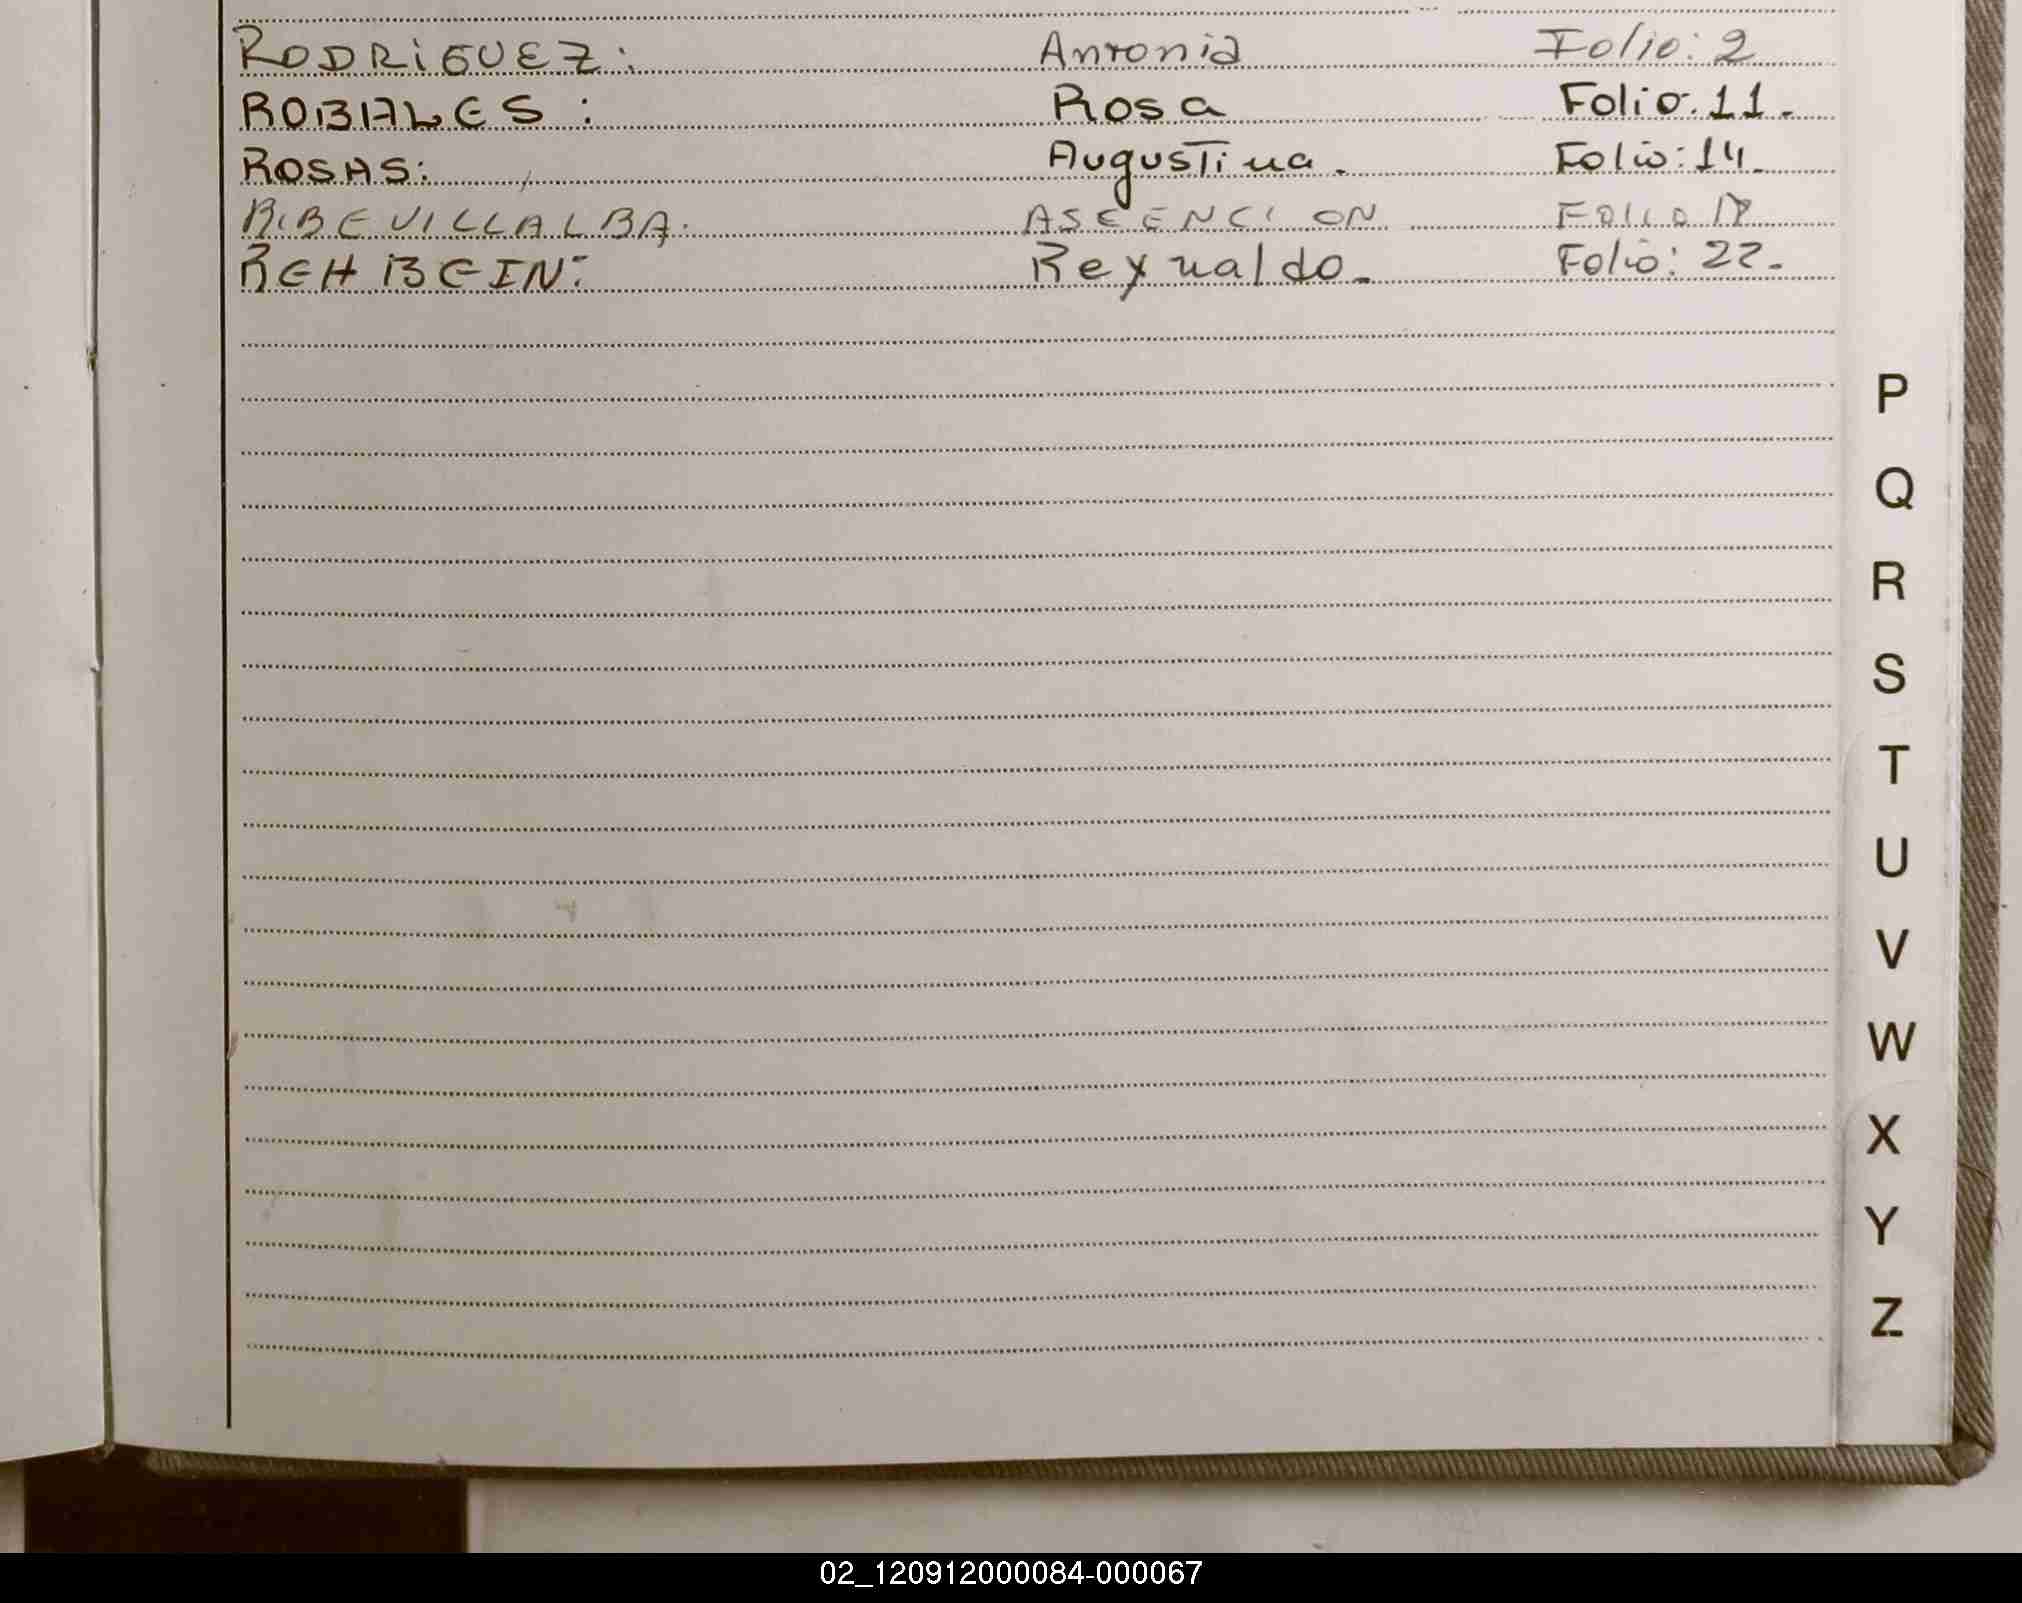 RODRIGUEZ: Antonia Folio: 2
ROBALES: Rosa Folio. 11.
ROSAS: Augustina. Folio: 14.
RIBEVILLALBA. ASCENCION FOLIO
REHBEIN: Reynaldo. Folio: 22.
P
Q
R
S
T
U
V
W
X
Y
Z
02_120912000084-000067